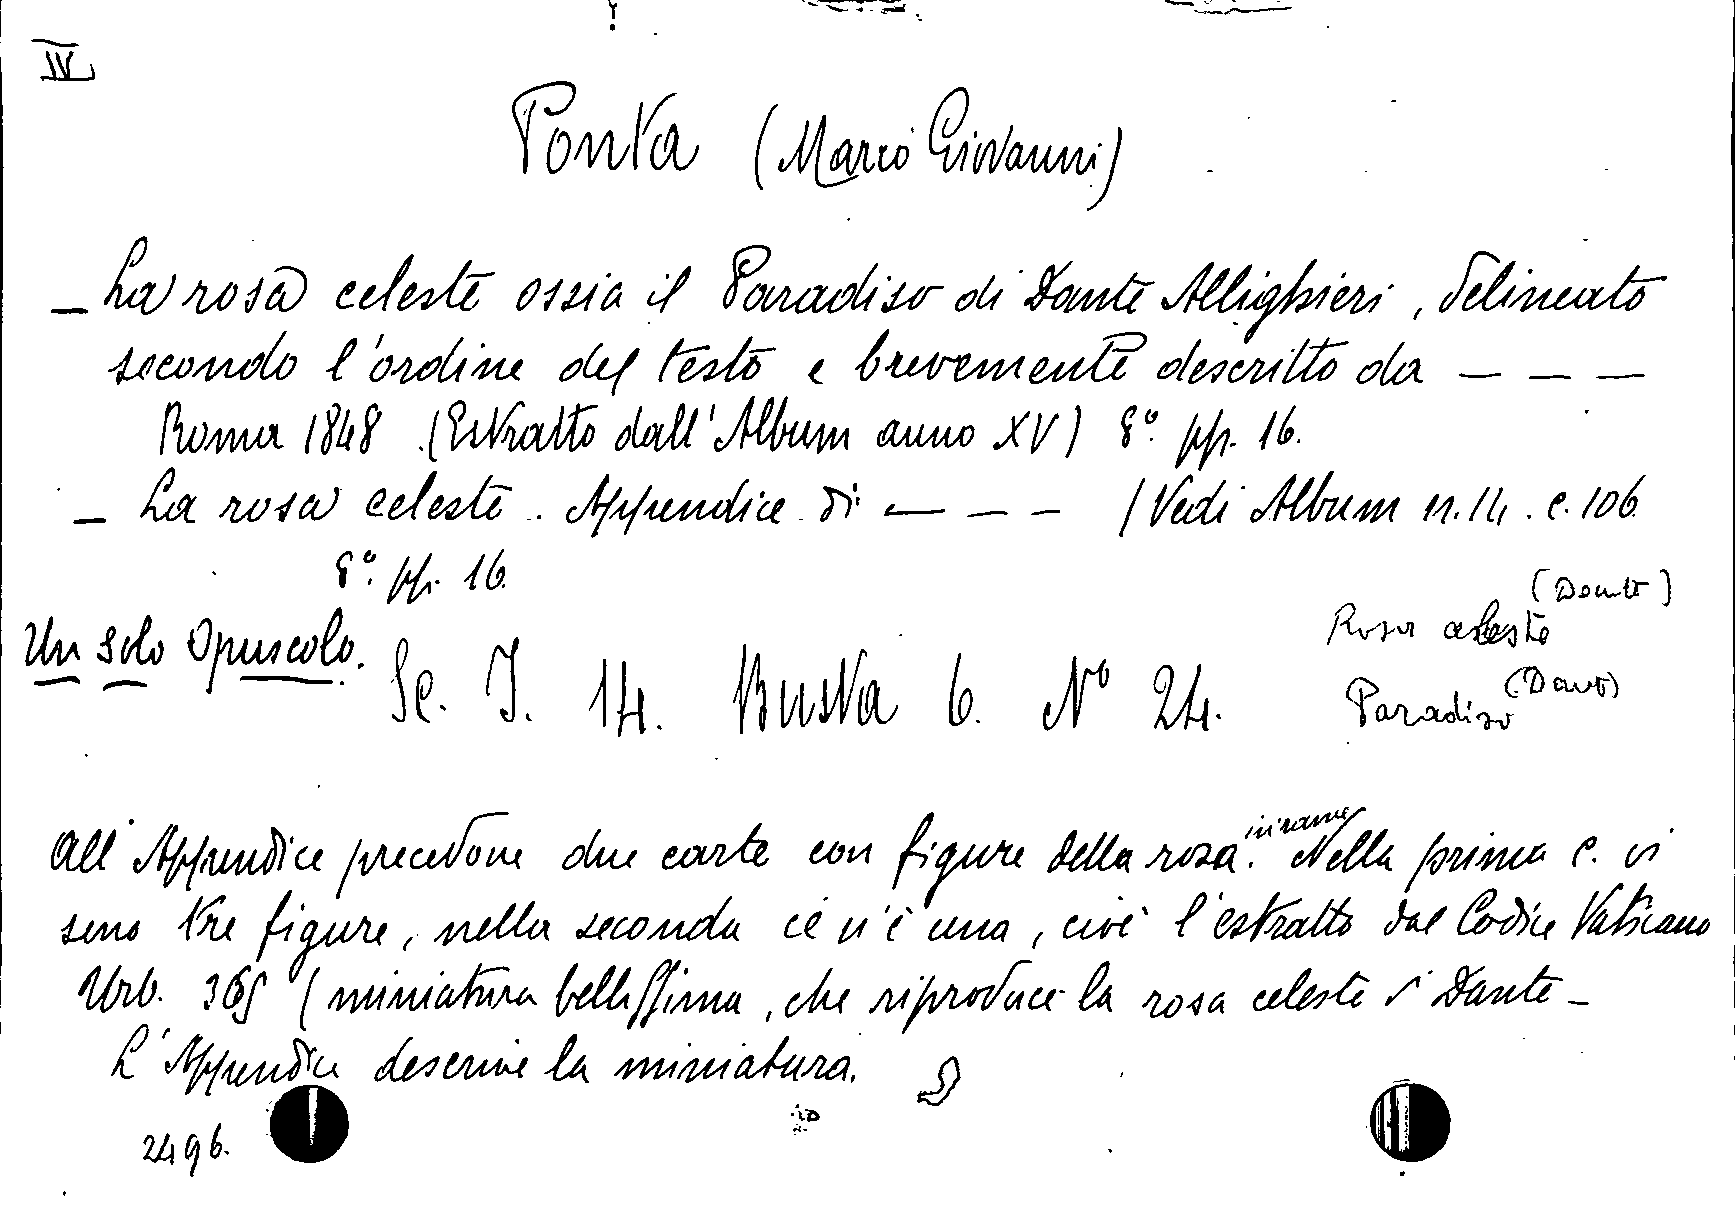 IV
Ponta (Marco Giovanni)
– La rosa celeste ossia il Paradiso di Dante Allighieri, delineato
secondo l'ordine del testo e brevemente descritto da – – –
Roma 1848 (Estratto dall'Album anno XV) 8º. pp. 16.
– La rosa celeste. Appendice di – – – (Vedi Album n. 14. c. 106
8º. pp. 16.
Un solo Opuscolo.
Sc. I. 14. Busta 6. Nº 24.
Rosa celeste (Dante)
Paradiso (Dante)
All'Appendice precedone due carte con figure della rosa in rame. Nella prima c. vi
sono tre figure, nella seconda ce n'è una, cioè l'estratto dal Codice Vaticano
Urb. 365 (miniatura bellissima, che riproduce la rosa celeste di Dante –
L'Appendice descrive la miniatura.
2496.